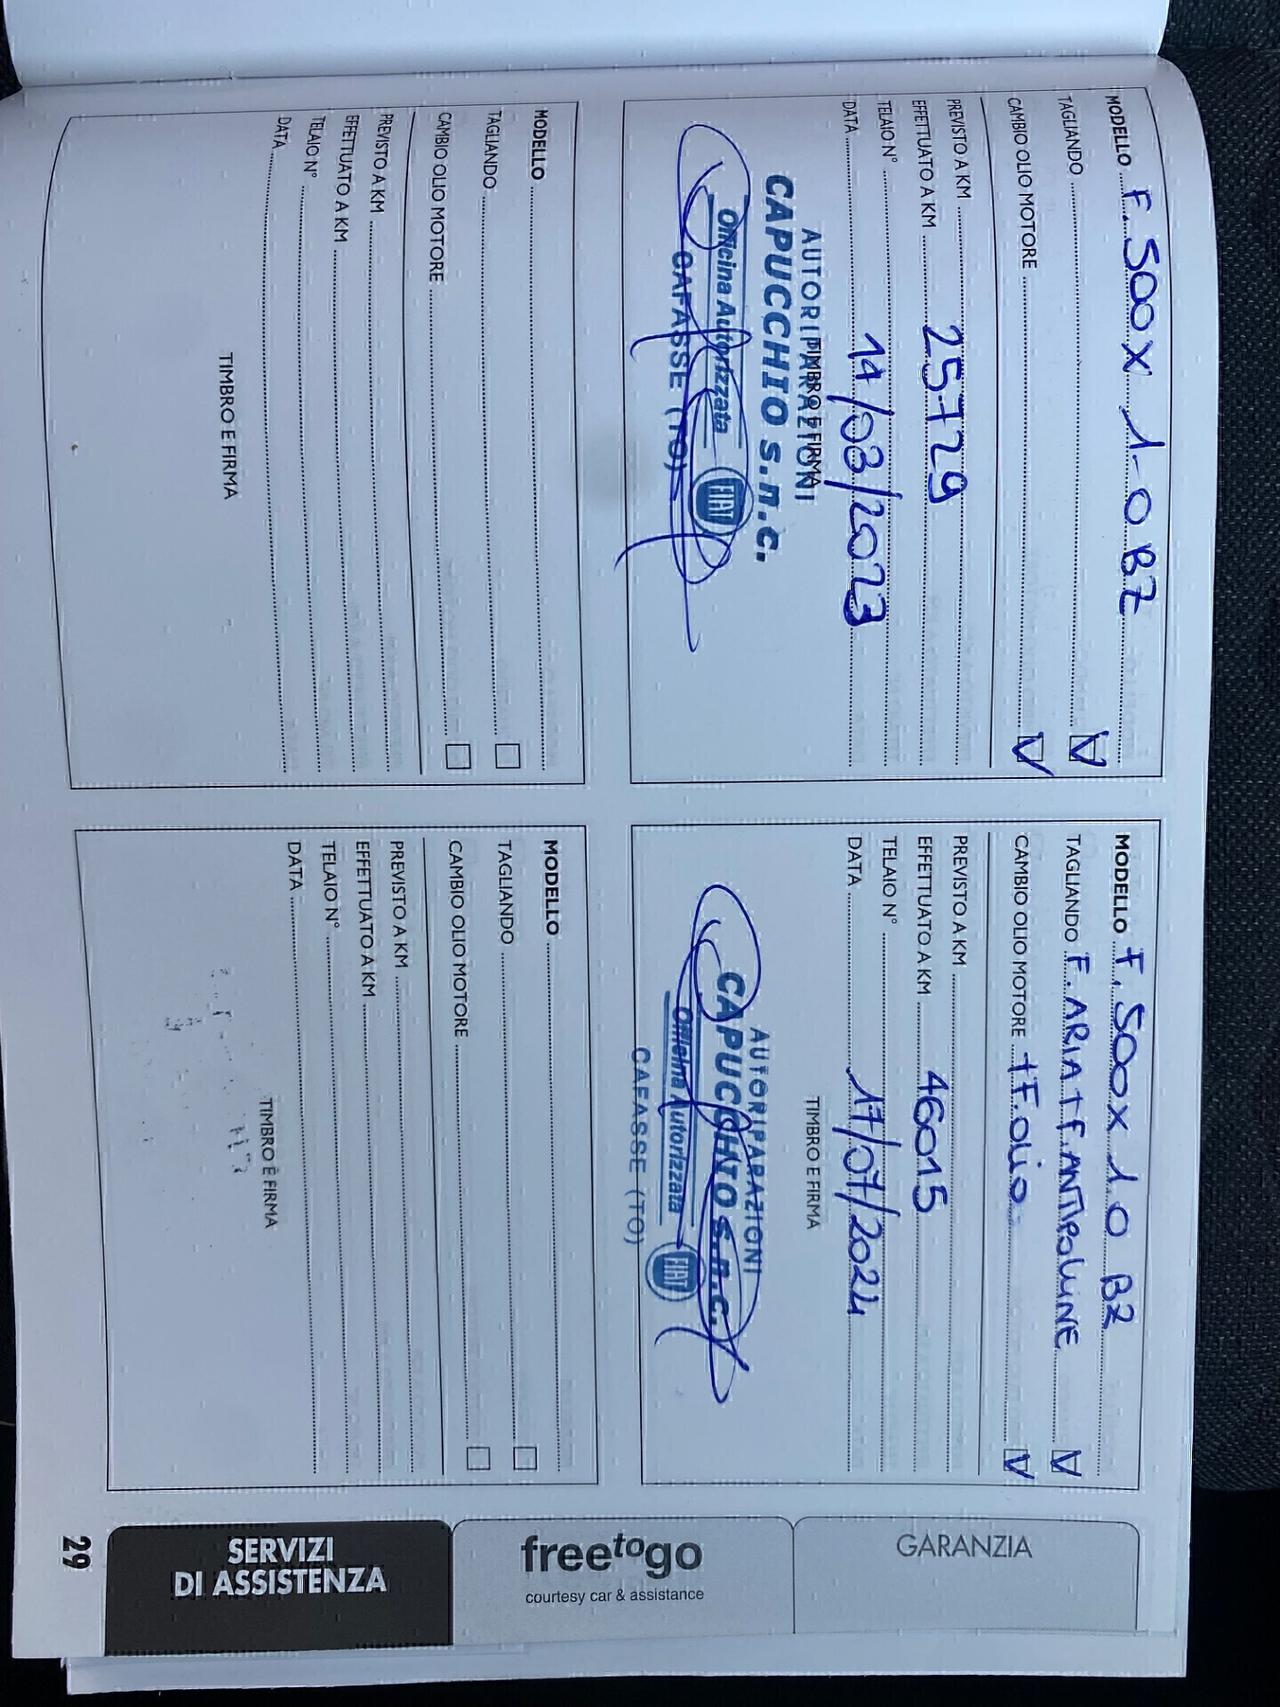 MODELLO F. 500X 1.0 BZ
TAGLIANDO V
CAMBIO OLIO MOTORE V
PREVISTO A KM
EFFETTUATO A KM 25729
TELAIO N°
DATA 14/03/2023
TIMBRO E FIRMA
AUTORIPARAZIONI
CAPUCCHIO s.n.c.
Officina Autorizzata FIAT
CAFASSE (TO)
MODELLO
TAGLIANDO
CAMBIO OLIO MOTORE
PREVISTO A KM
EFFETTUATO A KM
TELAIO N°
DATA
TIMBRO E FIRMA
MODELLO F. 500X 1.0 BZ
TAGLIANDO F. ARIA + F. ANTIPOLLINE V
CAMBIO OLIO MOTORE + F. OLIO V
PREVISTO A KM
EFFETTUATO A KM 46015
TELAIO N°
DATA 17/07/2024
TIMBRO E FIRMA
AUTORIPARAZIONI
CAPUCCHIO s.n.c.
Officina Autorizzata FIAT
CAFASSE (TO)
MODELLO
TAGLIANDO
CAMBIO OLIO MOTORE
PREVISTO A KM
EFFETTUATO A KM
TELAIO N°
DATA
TIMBRO E FIRMA
GARANZIA
freetogo
courtesy car & assistance
SERVIZI
DI ASSISTENZA
29